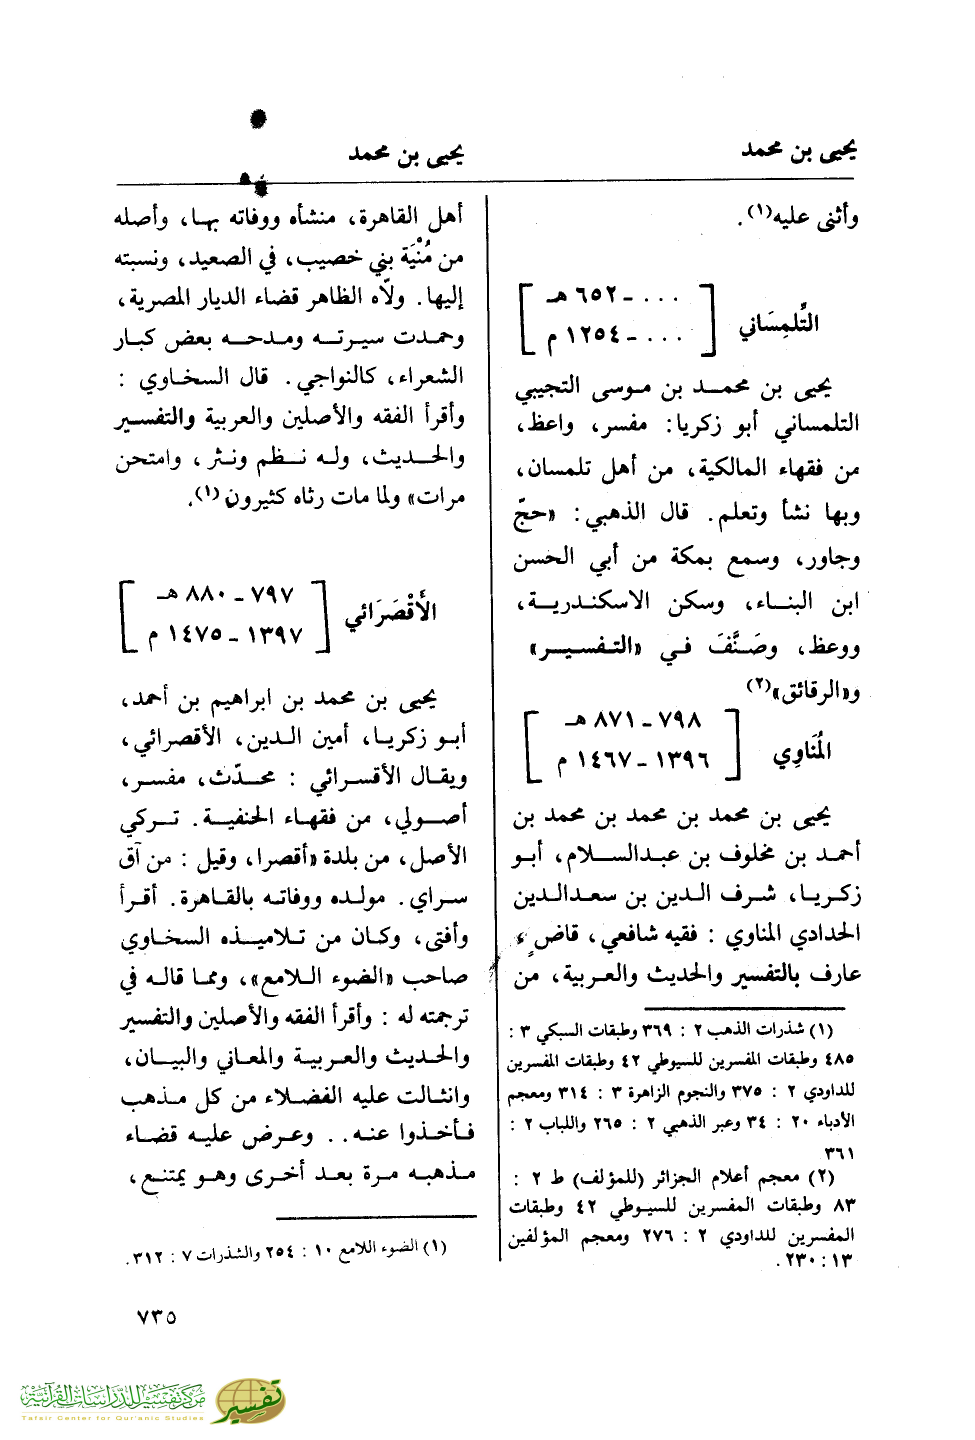 يحيى بن محمد
وأثنى عليه(١).
التِّلمِسَاني
[ . . . - ٦٥٢ هـ
. . . - ١٢٥٤ م ]
يحيى بن محمـد بن موسى التجيبي
التلمساني أبو زكريا: مفسر، واعظ،
من فقهاء المالكية، من أهل تلمسان،
وبها نشأ وتعلم. قال الذهبي: «حجّ
وجاور، وسمع بمكة من أبي الحسن
ابن البناء، وسكن الاسكندرية،
ووعظ، وصَنَّفَ في «التفسير»
و«الرقائق»(٢)
المُنَاوِي
[ ٧٩٨ - ٨٧١ هـ
١٣٩٦ - ١٤٦٧ م ]
يحيى بن محمد بن محمد بن محمد بن
أحمد بن مخلوف بن عبدالسلام، أبو
زكريا، شرف الدين بن سعدالدين
الحدادي المناوي : فقيه شافعي، قاضٍ ،
عارف بالتفسير والحديث والعربية، من
(١) شذرات الذهب ٢ : ٣٦٩ وطبقات السبكي ٣ :
٤٨٥ وطبقات المفسرين للسيوطي ٤٢ وطبقات المفسرين
للداودي ٢ : ٣٧٥ والنجوم الزاهرة ٣ : ٣١٤ ومعجم
الأدباء ٢٠ : ٣٤ وعبر الذهبي ٢ : ٢٦٥ واللباب ٢ :
٣٦١
(٢) معجم أعلام الجزائر (للمؤلف) ط ٢ :
٨٣ وطبقات المفسرين للسيوطي ٤٢ وطبقات
المفسرين للداودي ٢ : ٢٧٦ ومعجم المؤلفين
١٣ : ٢٣٠ .
يحيى بن محمد
أهل القاهرة، منشأه ووفاته بها، وأصله
من مُنْيَة بني خصيب، في الصعيد، ونسبته
إليها. ولاّه الظاهر قضاء الديار المصرية،
وحمدت سيرته ومدحه بعض كبار
الشعراء، كالنواجي. قال السخاوي :
وأقرأ الفقه والأصلين والعربية والتفسير
والحديث، وله نظم ونثر، وامتحن
مرات» ولما مات رثاه كثيرون(١).
الأَقْصَرَائي
[ ٧٩٧ - ٨٨٠ هـ
١٣٩٧ - ١٤٧٥ م ]
يحيى بن محمد بن ابراهيم بن أحمد،
أبو زكريا، أمين الدين، الأقصرائي،
ويقال الأقسرائي : محدّث، مفسر،
أصولي، من فقهاء الحنفية. تركي
الأصل، من بلدة «أقصرا، وقيل : من آق
سراي. مولده ووفاته بالقاهرة. أقرأ
وأفتى، وكان من تلاميذه السخاوي
صاحب «الضوء اللامع»، ومما قاله في
ترجمته له : وأقرأ الفقه والأصلين والتفسير
والحديث والعربية والمعاني والبيان،
وانثالت عليه الفضلاء من كل مذهب
فأخذوا عنه.. وعرض عليه قضاء
مذهبه مرة بعد أخرى وهو يمتنع،
(١) الضوء اللامع ١٠ : ٢٥٤ والشذرات ٧ : ٣١٢.
٧٣٥
مركز تفسير للدراسات القرآنية
Tafsir Center for Qur'anic Studies
تفسير